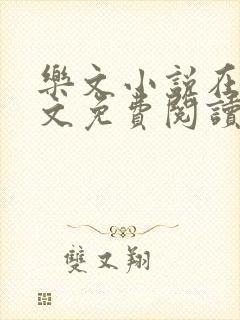 樂文小說在
文免費閱讀
雙文翔